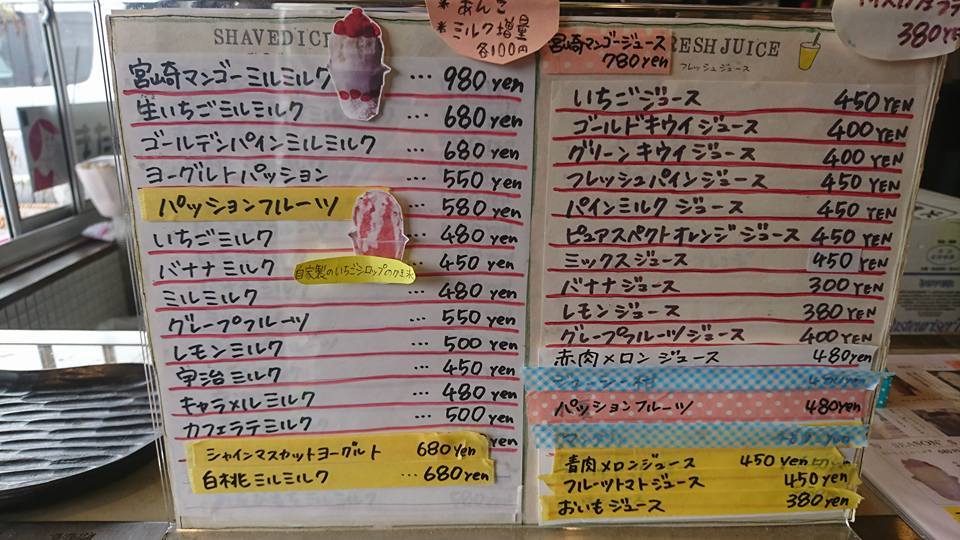 *あんこ
*ミルク増量
各100円
380yen
SHAVEDICE
宮崎マンゴーミルミルク … 980yen
生いちごミルミルク … 680yen
ゴールデンパインミルミルク … 680yen
ヨーグルトパッション … 550yen
パッションフルーツ … 580yen
いちごミルク … 480yen
バナナミルク … 450yen
自家製のいちごシロップのかき氷
ミルミルク … 480yen
グレープフルーツ … 550yen
レモンミルク … 500yen
宇治ミルク … 450yen
キャラメルミルク … 480yen
カフェラテミルク … 500yen
yen
シャインマスカットヨーグルト 680yen
白桃ミルミルク … 680yen
宮崎マンゴージュース
780yen
RESHJUICE
フレッシュジュース
いちごジュース 450YEN
ゴールドキウイジュース 400YEN
グリーンキウイジュース 400YEN
フレッシュパインジュース 450YEN
パインミルクジュース 450YEN
ピュアスペクトオレンジジュース 450YEN
ミックスジュース 450YEN
バナナジュース 300YEN
レモンジュース 380YEN
グレープフルーツジュース 400YEN
赤肉メロンジュース 480yen
パッションフルーツ 480yen
青肉メロンジュース 450yen
フルーツトマトジュース 450yen
おいもジュース 380yen